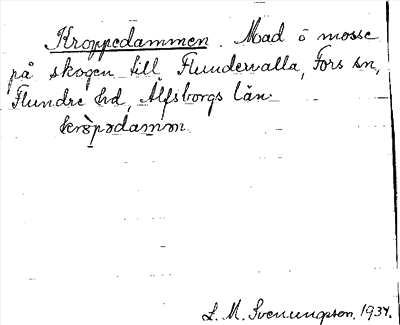 Kroppedammen. Mad ö mosse
på skogen till Flundervalla, Fors sn,
Flundre hd, Älfsborgs län.
kròpədamən
L. M. Svenungsson, 1934.